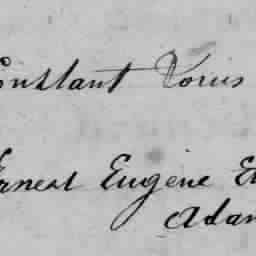 Constant Louis
Ernest Eugene E
Adam